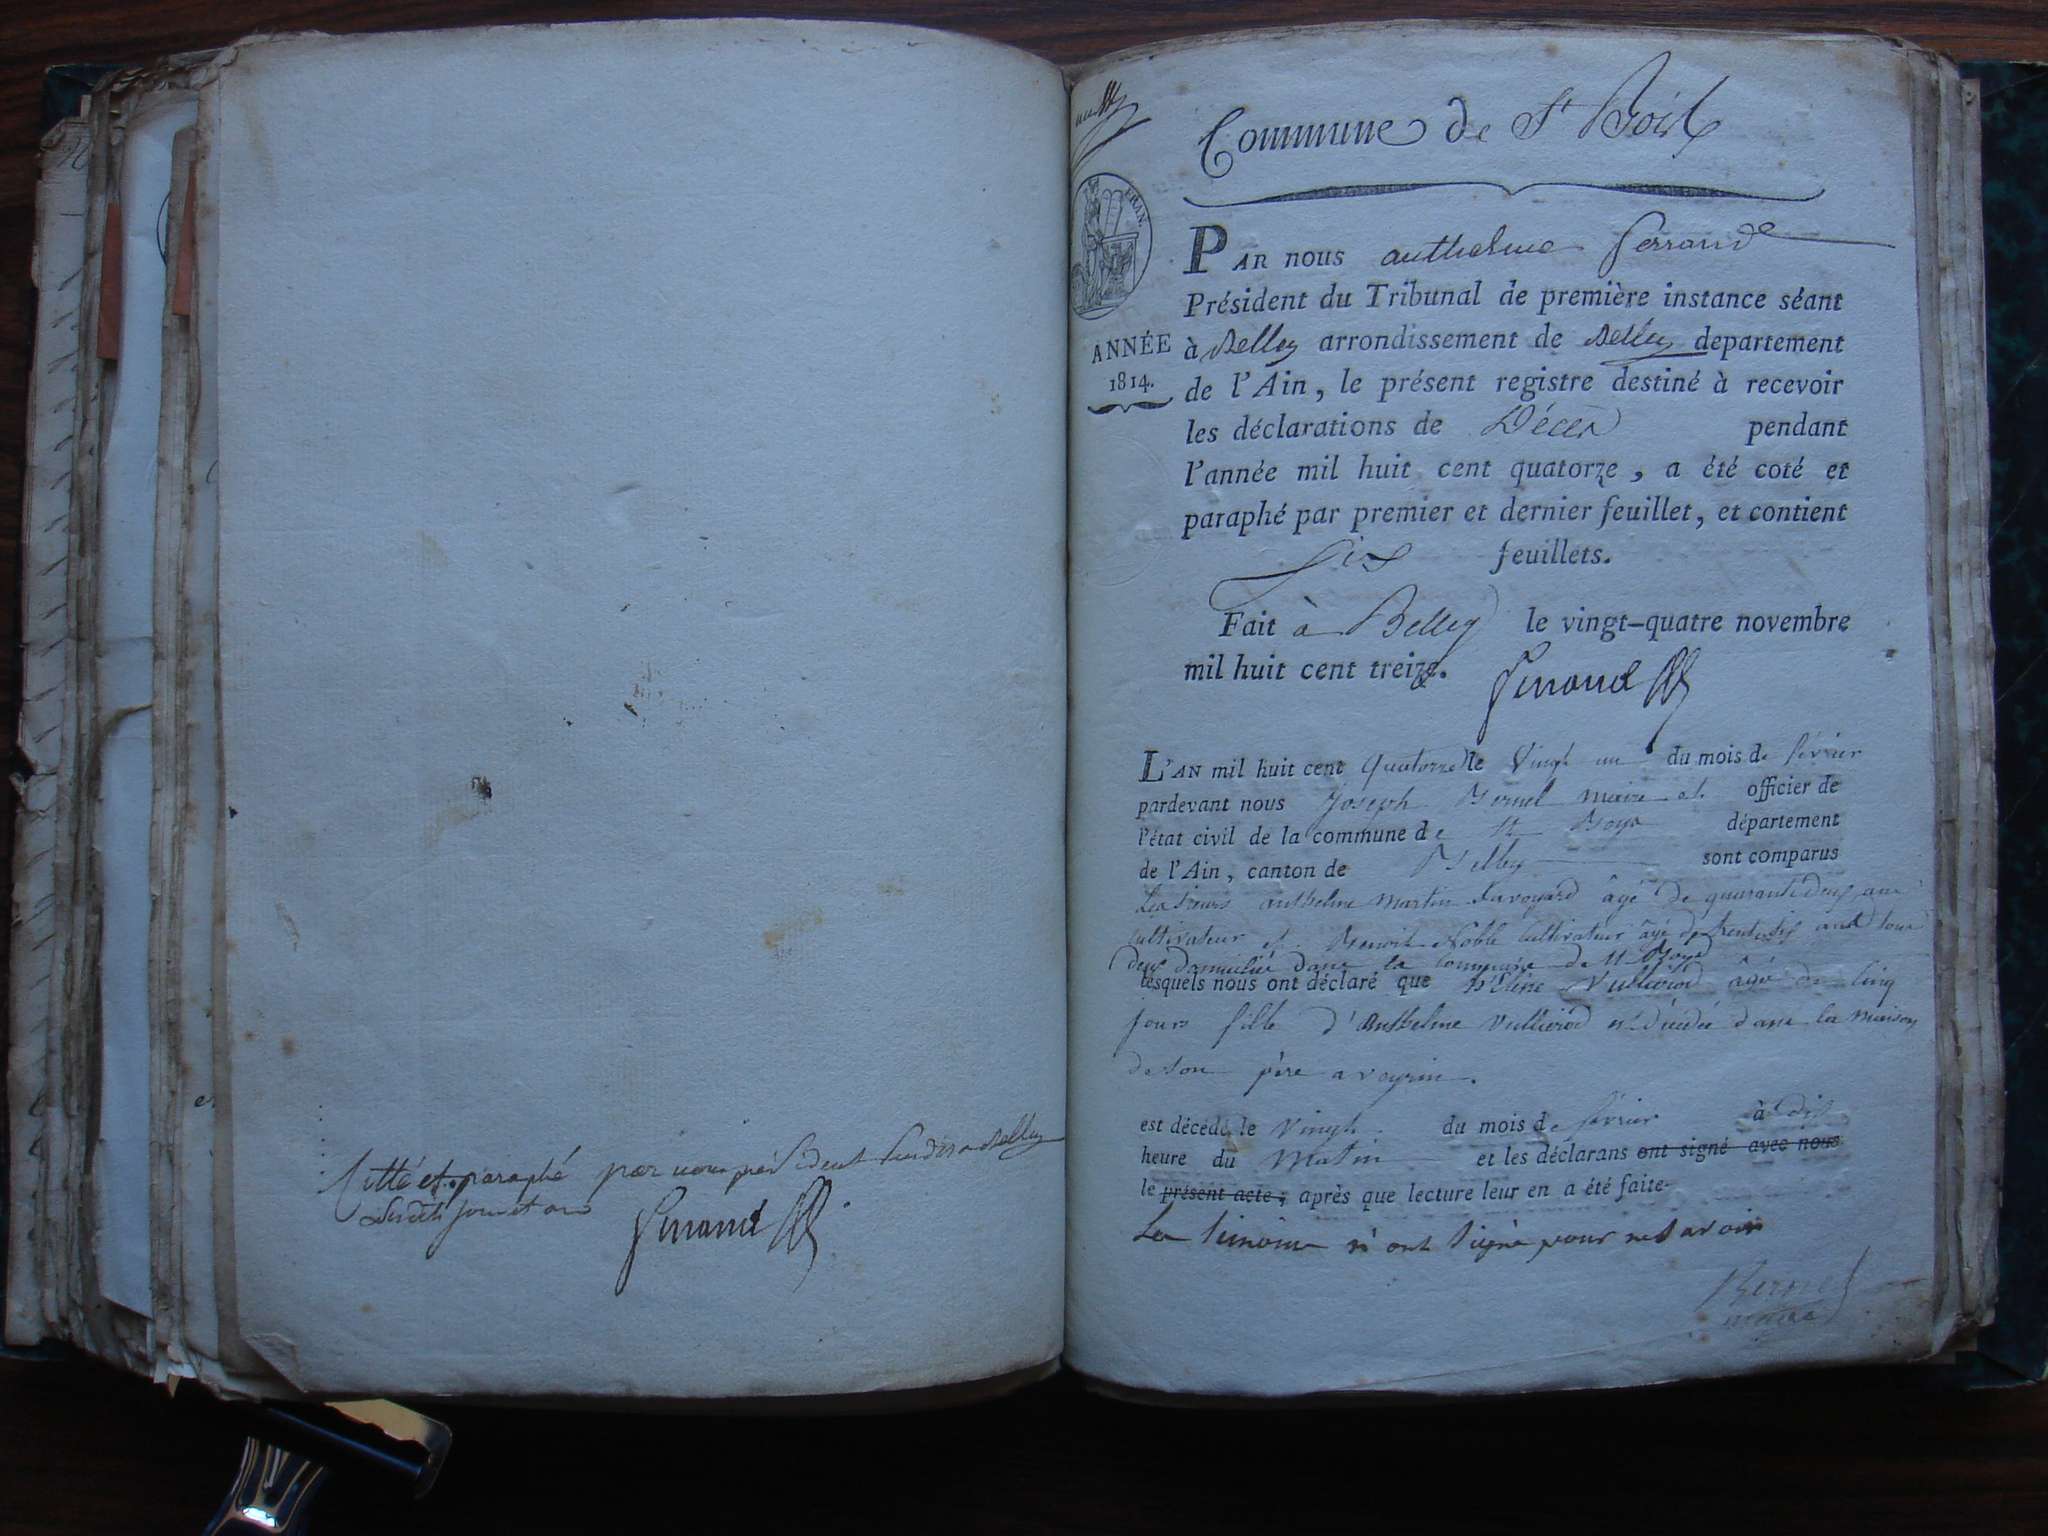 Cotté et paraphé par nous président Susdit à Belley
Lesdits jour et an
Ferrand
Commune de St Bois
FRAN.
ANNÉE
1814.
PAR nous anthelme ferrand
Président du Tribunal de première instance séant
à Belley arrondissement de Belley departement
de l'Ain, le présent registre destiné à recevoir
les déclarations de Décès pendant
l'année mil huit cent quatorze, a été coté et
paraphé par premier et dernier feuillet, et contient
six feuillets.
Fait à Belley le vingt-quatre novembre
mil huit cent treize.
Ferrand
L'AN mil huit cent quatorze le vingt un du mois de février
pardevant nous Joseph Bernel maire et officier de
l'état civil de la commune de St Boys département
de l'Ain, canton de Belley sont comparus
Les sieurs anthelme martin Savoyard âgé de quarantedeux ans
cultivateur et Benoit Noble cultivateur âgé de trentesix ans tous
deux domicilié dans la commune de St Boys
lesquels nous ont déclaré que Vullierod âgé de cinq
jours fille d'anthelme vullierod est décédée dans la maison
de son père a veyrin.
est décédé le vingt du mois de février à dix
heure du matin et les déclarans ont signé avec nous
le présent acte, après que lecture leur en a été faite.
Les témoins n'ont signé pour ne savoir
Bernel
maire